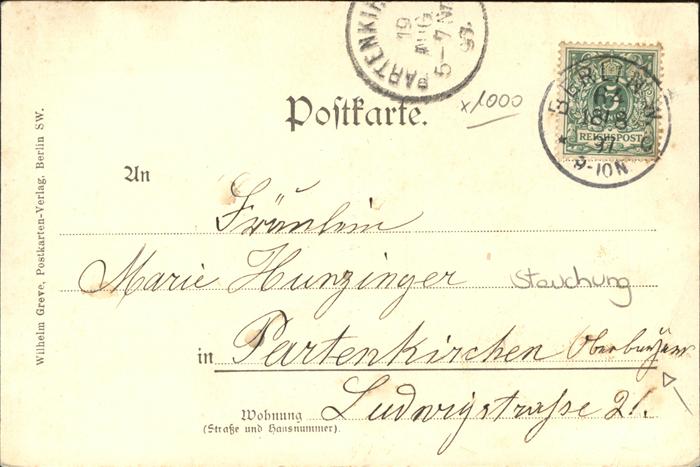 PARTENKIR
19
AUG
5-7 N
97.
Postkarte.
x1000
BERLIN, W
5
18/8
REICHSPOST
97
9-10N
An
Fräulein
Marie Hunzinger
Stauchung
in Partenkirchen
Ludwigstraße 21.
Wohnung
(Straße und Hausnummer).
Wilhelm Greve, Postkarten-Verlag, Berlin SW.